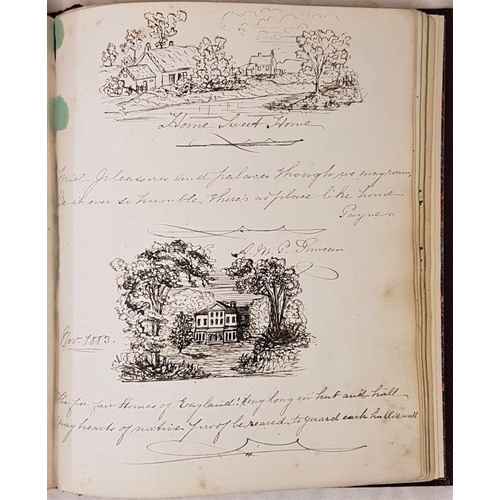 Home Sweet Home
Mid Pleasures and palaces though we may roam,
Be it ever so humble, there's no place like home.
Payne
A. M. P. Duncan
Nov. 1883.
The free fair Homes of England! long long in hut and hall
May hearts of native proof be reared to guard each hallowed wall